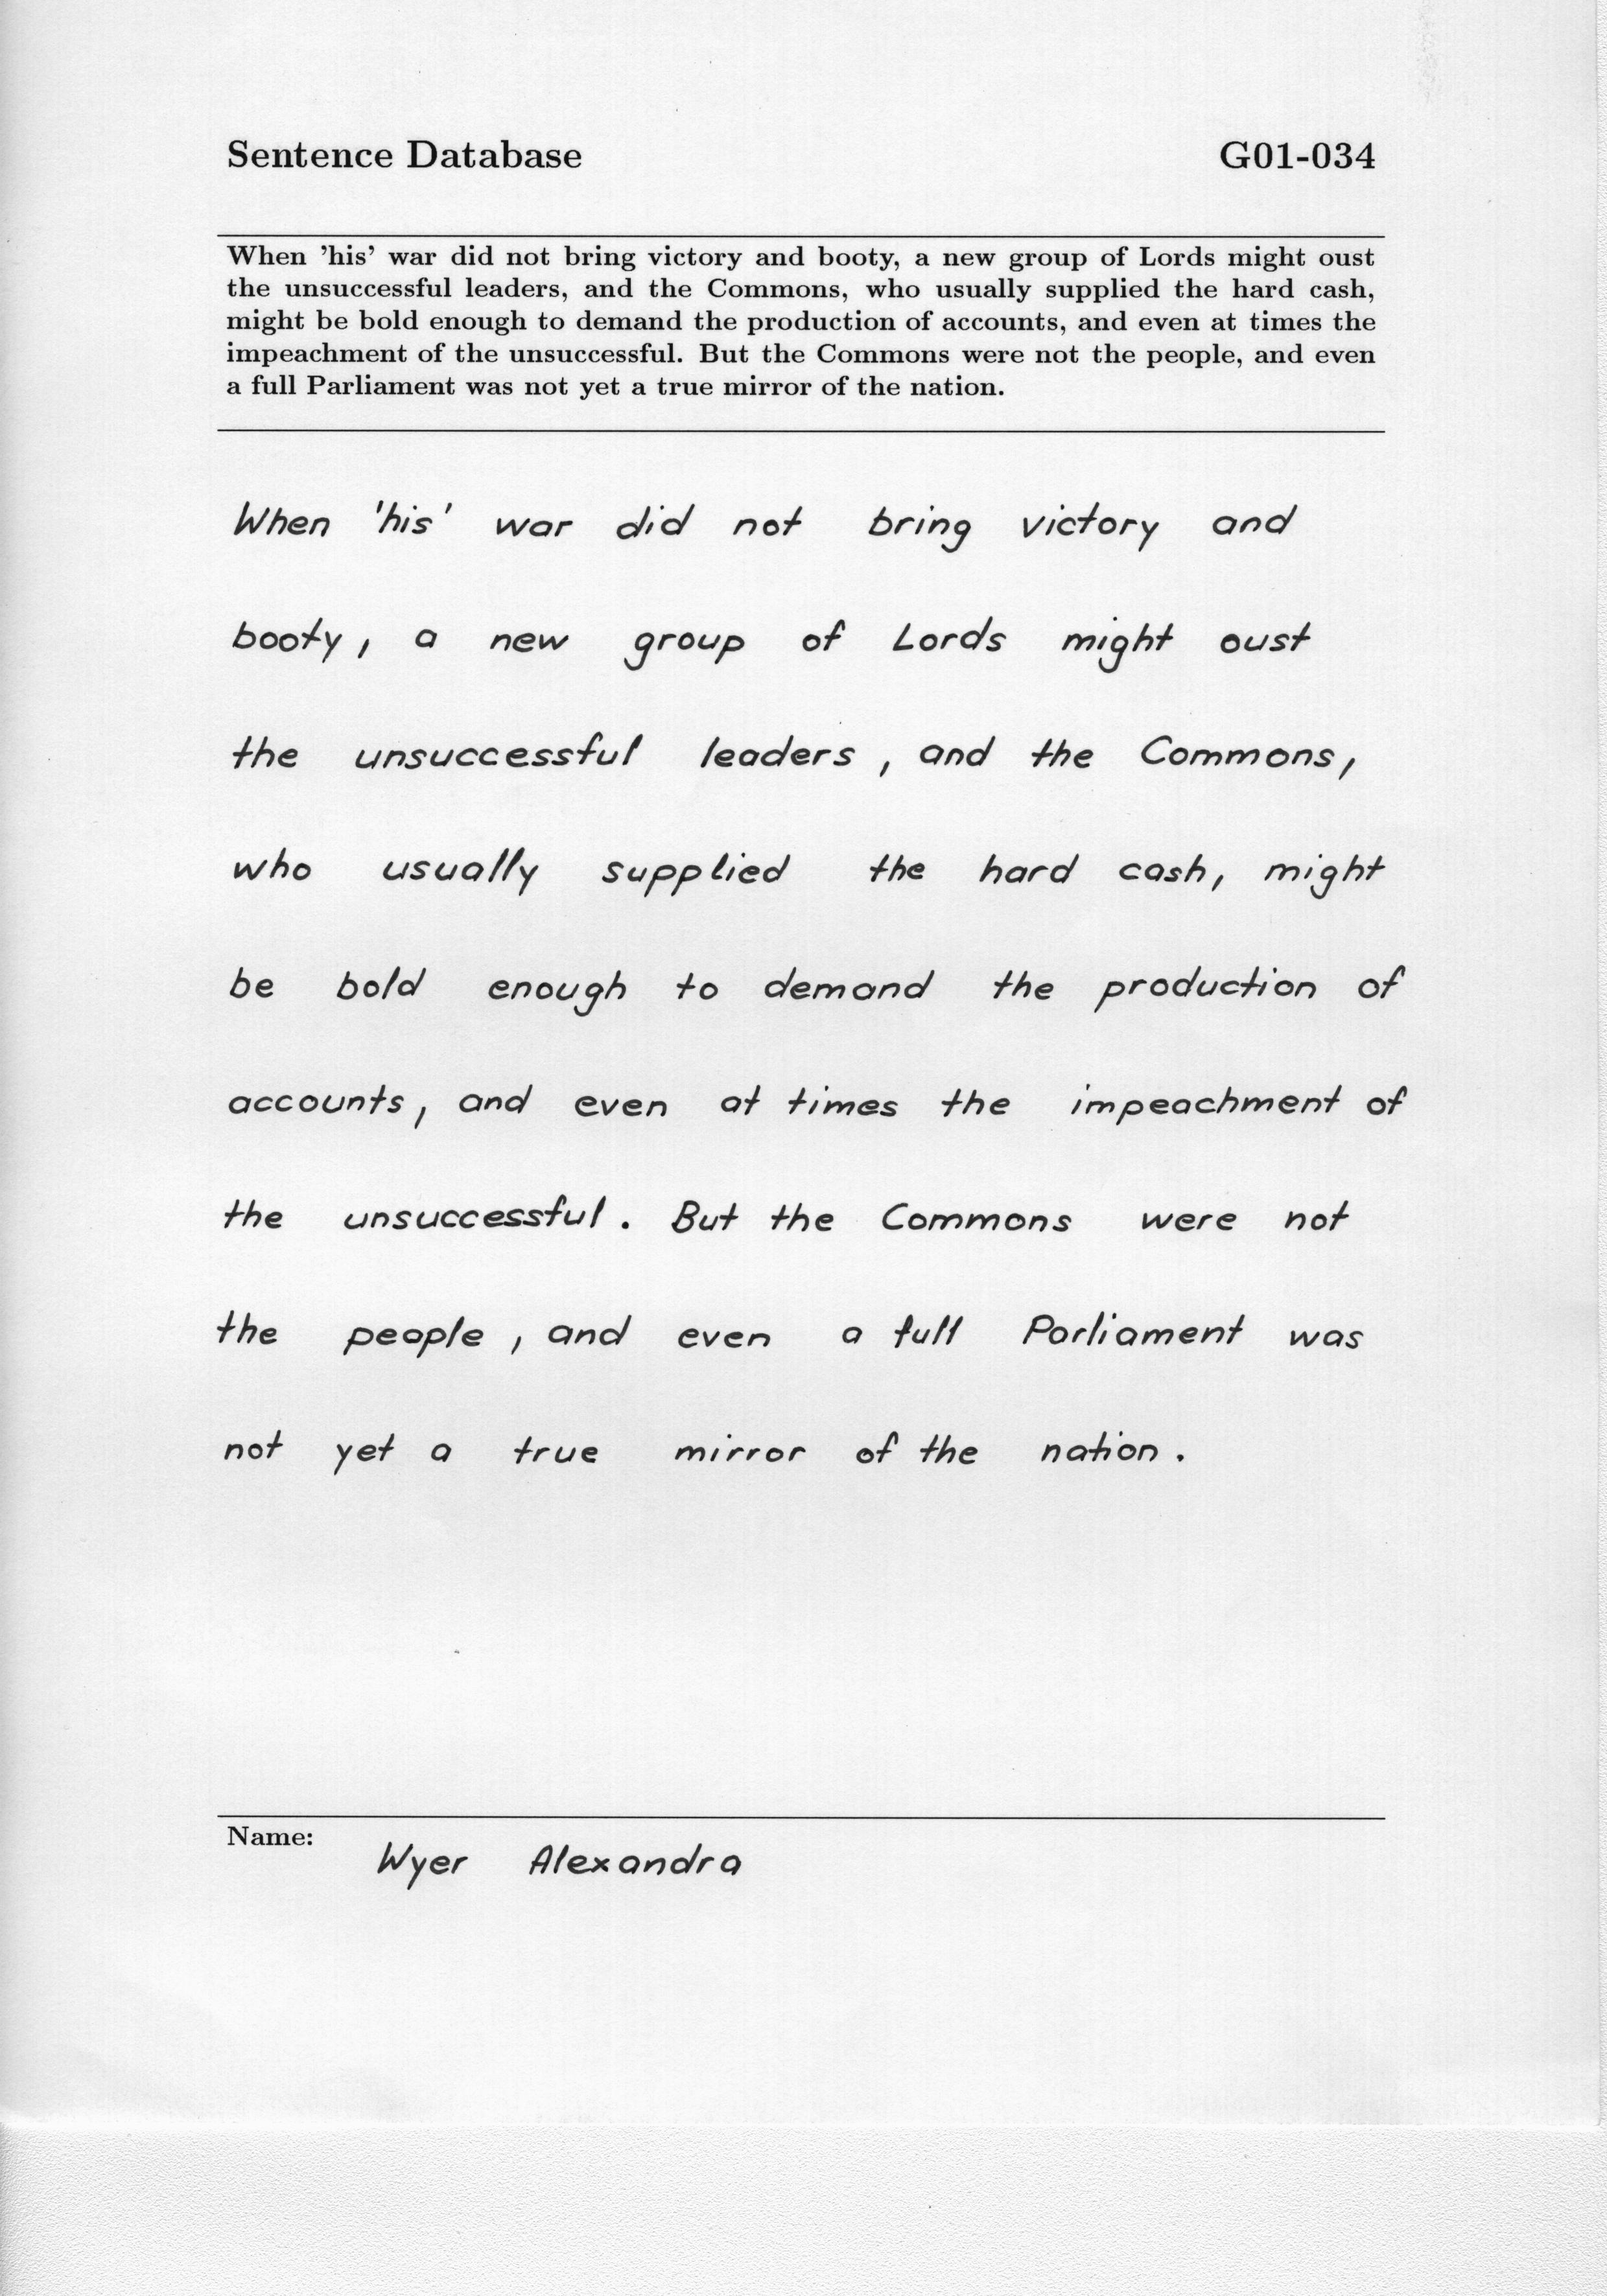 Sentence Database G01-034
When 'his' war did not bring victory and booty, a new group of Lords might oust
the unsuccessful leaders, and the Commons, who usually supplied the hard cash,
might be bold enough to demand the production of accounts, and even at times the
impeachment of the unsuccessful. But the Commons were not the people, and even
a full Parliament was not yet a true mirror of the nation.
When 'his' war did not bring victory and
booty, a new group of Lords might oust
the unsuccessful leaders, and the Commons,
who usually supplied the hard cash, might
be bold enough to demand the production of
accounts, and even at times the impeachment of
the unsuccessful. But the Commons were not
the people, and even a full Parliament was
not yet a true mirror of the nation.
Name: Wyer Alexandra